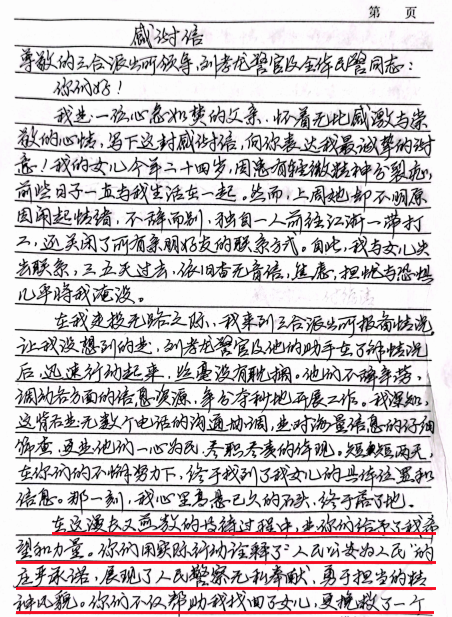 第 页
感谢信
尊敬的三合派出所领导,刘孝龙警官及全体民警同志:
你们好!
我是一位心急如焚的父亲,怀着无比感激与崇
敬的心情,写下这封感谢信,向你表达我最诚挚的谢
意!我的女儿今年二十四岁,因患有轻微精神分裂症,
前些日子一直与我生活在一起。然而,上周她却不明原
因闹起情绪,不辞而别,独自一人前往江浙一带打
工,还关闭了所有亲朋好友的联系方式。自此,我与女儿失
去联系,三五天过去,依旧杳无音信,焦虑,担忧与恐惧
几乎将我淹没。
在我走投无路之际,我来到三合派出所报备情况,
让我没想到的是,刘孝龙警官及他的助手在了解情况
后,迅速行动起来,丝毫没有耽搁。他们不辞辛劳,
调动各方面的信息资源,争分夺秒地开展工作。我深知,
这背后是无数个电话的沟通协调,是对海量信息的仔细
筛查,更是他们一心为民、尽职尽责的体现。短短两天,
在你们的不懈努力下,终于找到了我女儿的具体位置和
信息。那一刻,我心里高悬已久的石头,终于落了地。
在这漫长又煎熬的等待过程中,是你们给予了我希
望和力量。你们用实际行动诠释了"人民公安为人民"的
庄严承诺,展现了人民警察无私奉献,勇于担当的精
神风貌。你们不仅帮助我找回了女儿,更挽救了一个